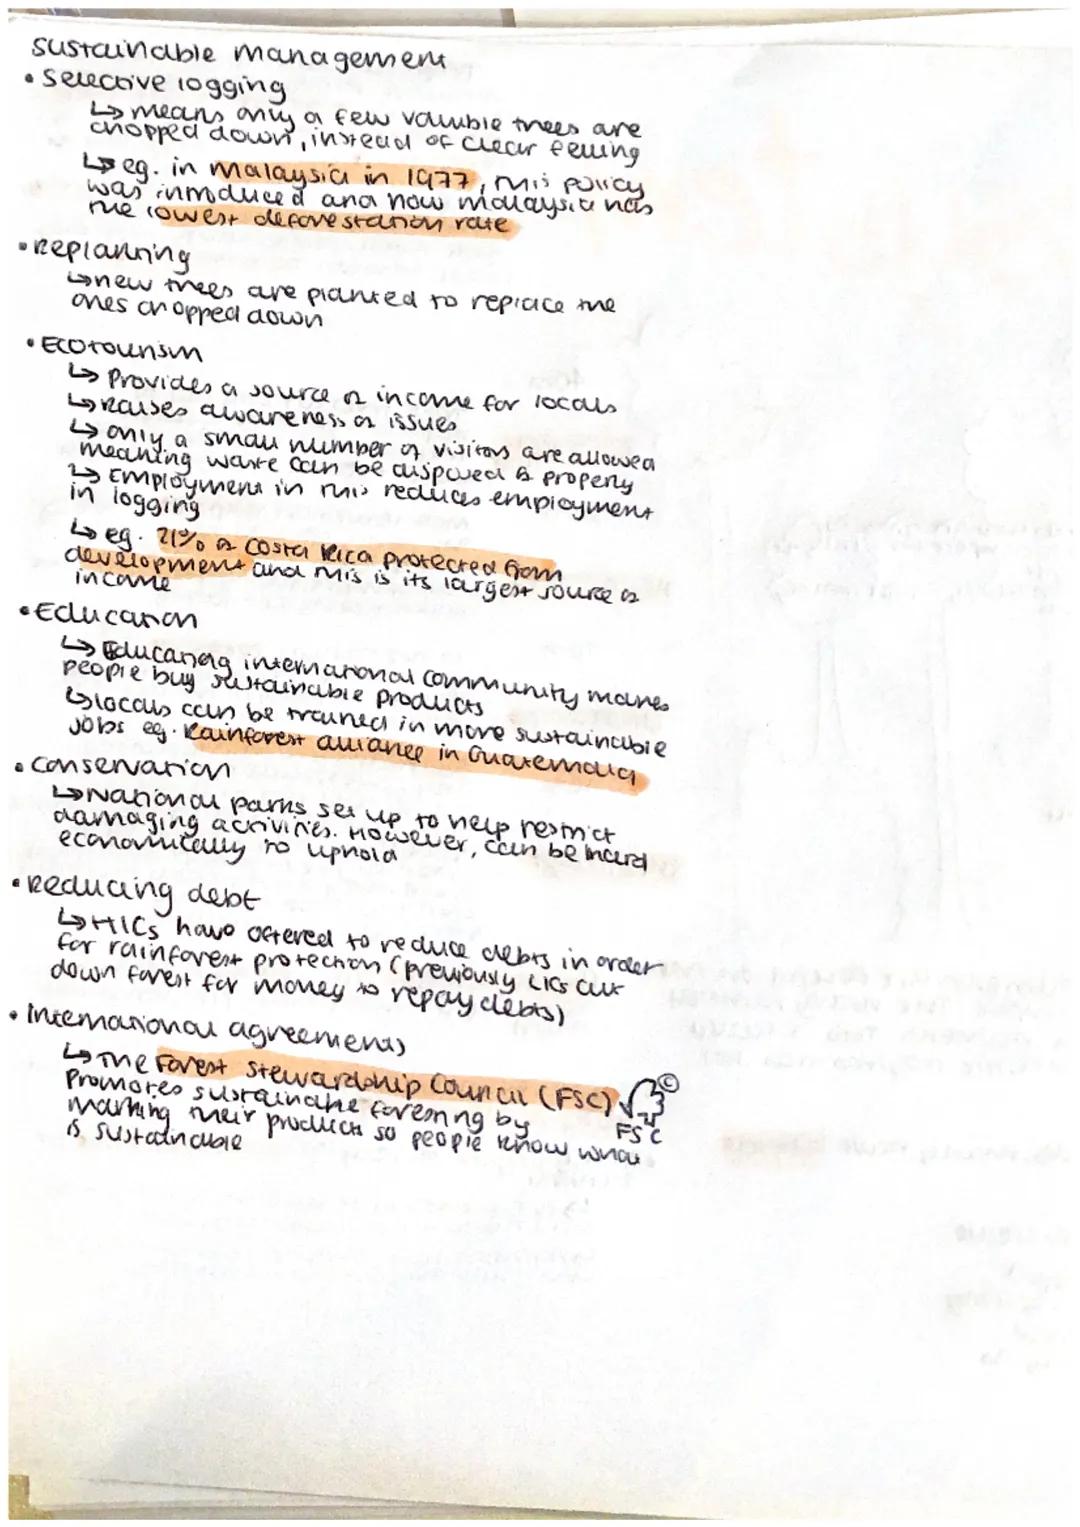 sustainable management
• Selective logging
↳ means only a few valuble trees are
chopped down, instead of clear felling
↳ eg. in Malaysia in 1977, this policy
was introduced and now malaysia has
the lowest deforestation rate
• Replanting
↳ new trees are planted to replace the
ones chopped down
• Ecotourism
↳ Provides a source of income for locals
↳ Raises awareness of issues
↳ only a small number of visitors are allowed
meaning waste can be disposed properly
↳ Employment in this reduces employment
in logging
↳ eg. 21% of Costa Rica protected from
development and this is its largest source of
income
• Education
↳ Educating international community makes
people buy sustainable products
↳ locals can be trained in more sustainable
jobs eg. Rainforest alliance in Guatemala
• Conservation
↳ National parks set up to help restrict
damaging activities. However, can be hard
economically to uphold
• Reducing debt
↳ HICs have offered to reduce debts in order
for rainforest protection (previously LICs cut
down forest for money to repay debts)
• International agreements
↳ The Forest Stewardship Council (FSC) ©
Promotes sustainable foresting by FSC
marking their products so people know what
is sustainable